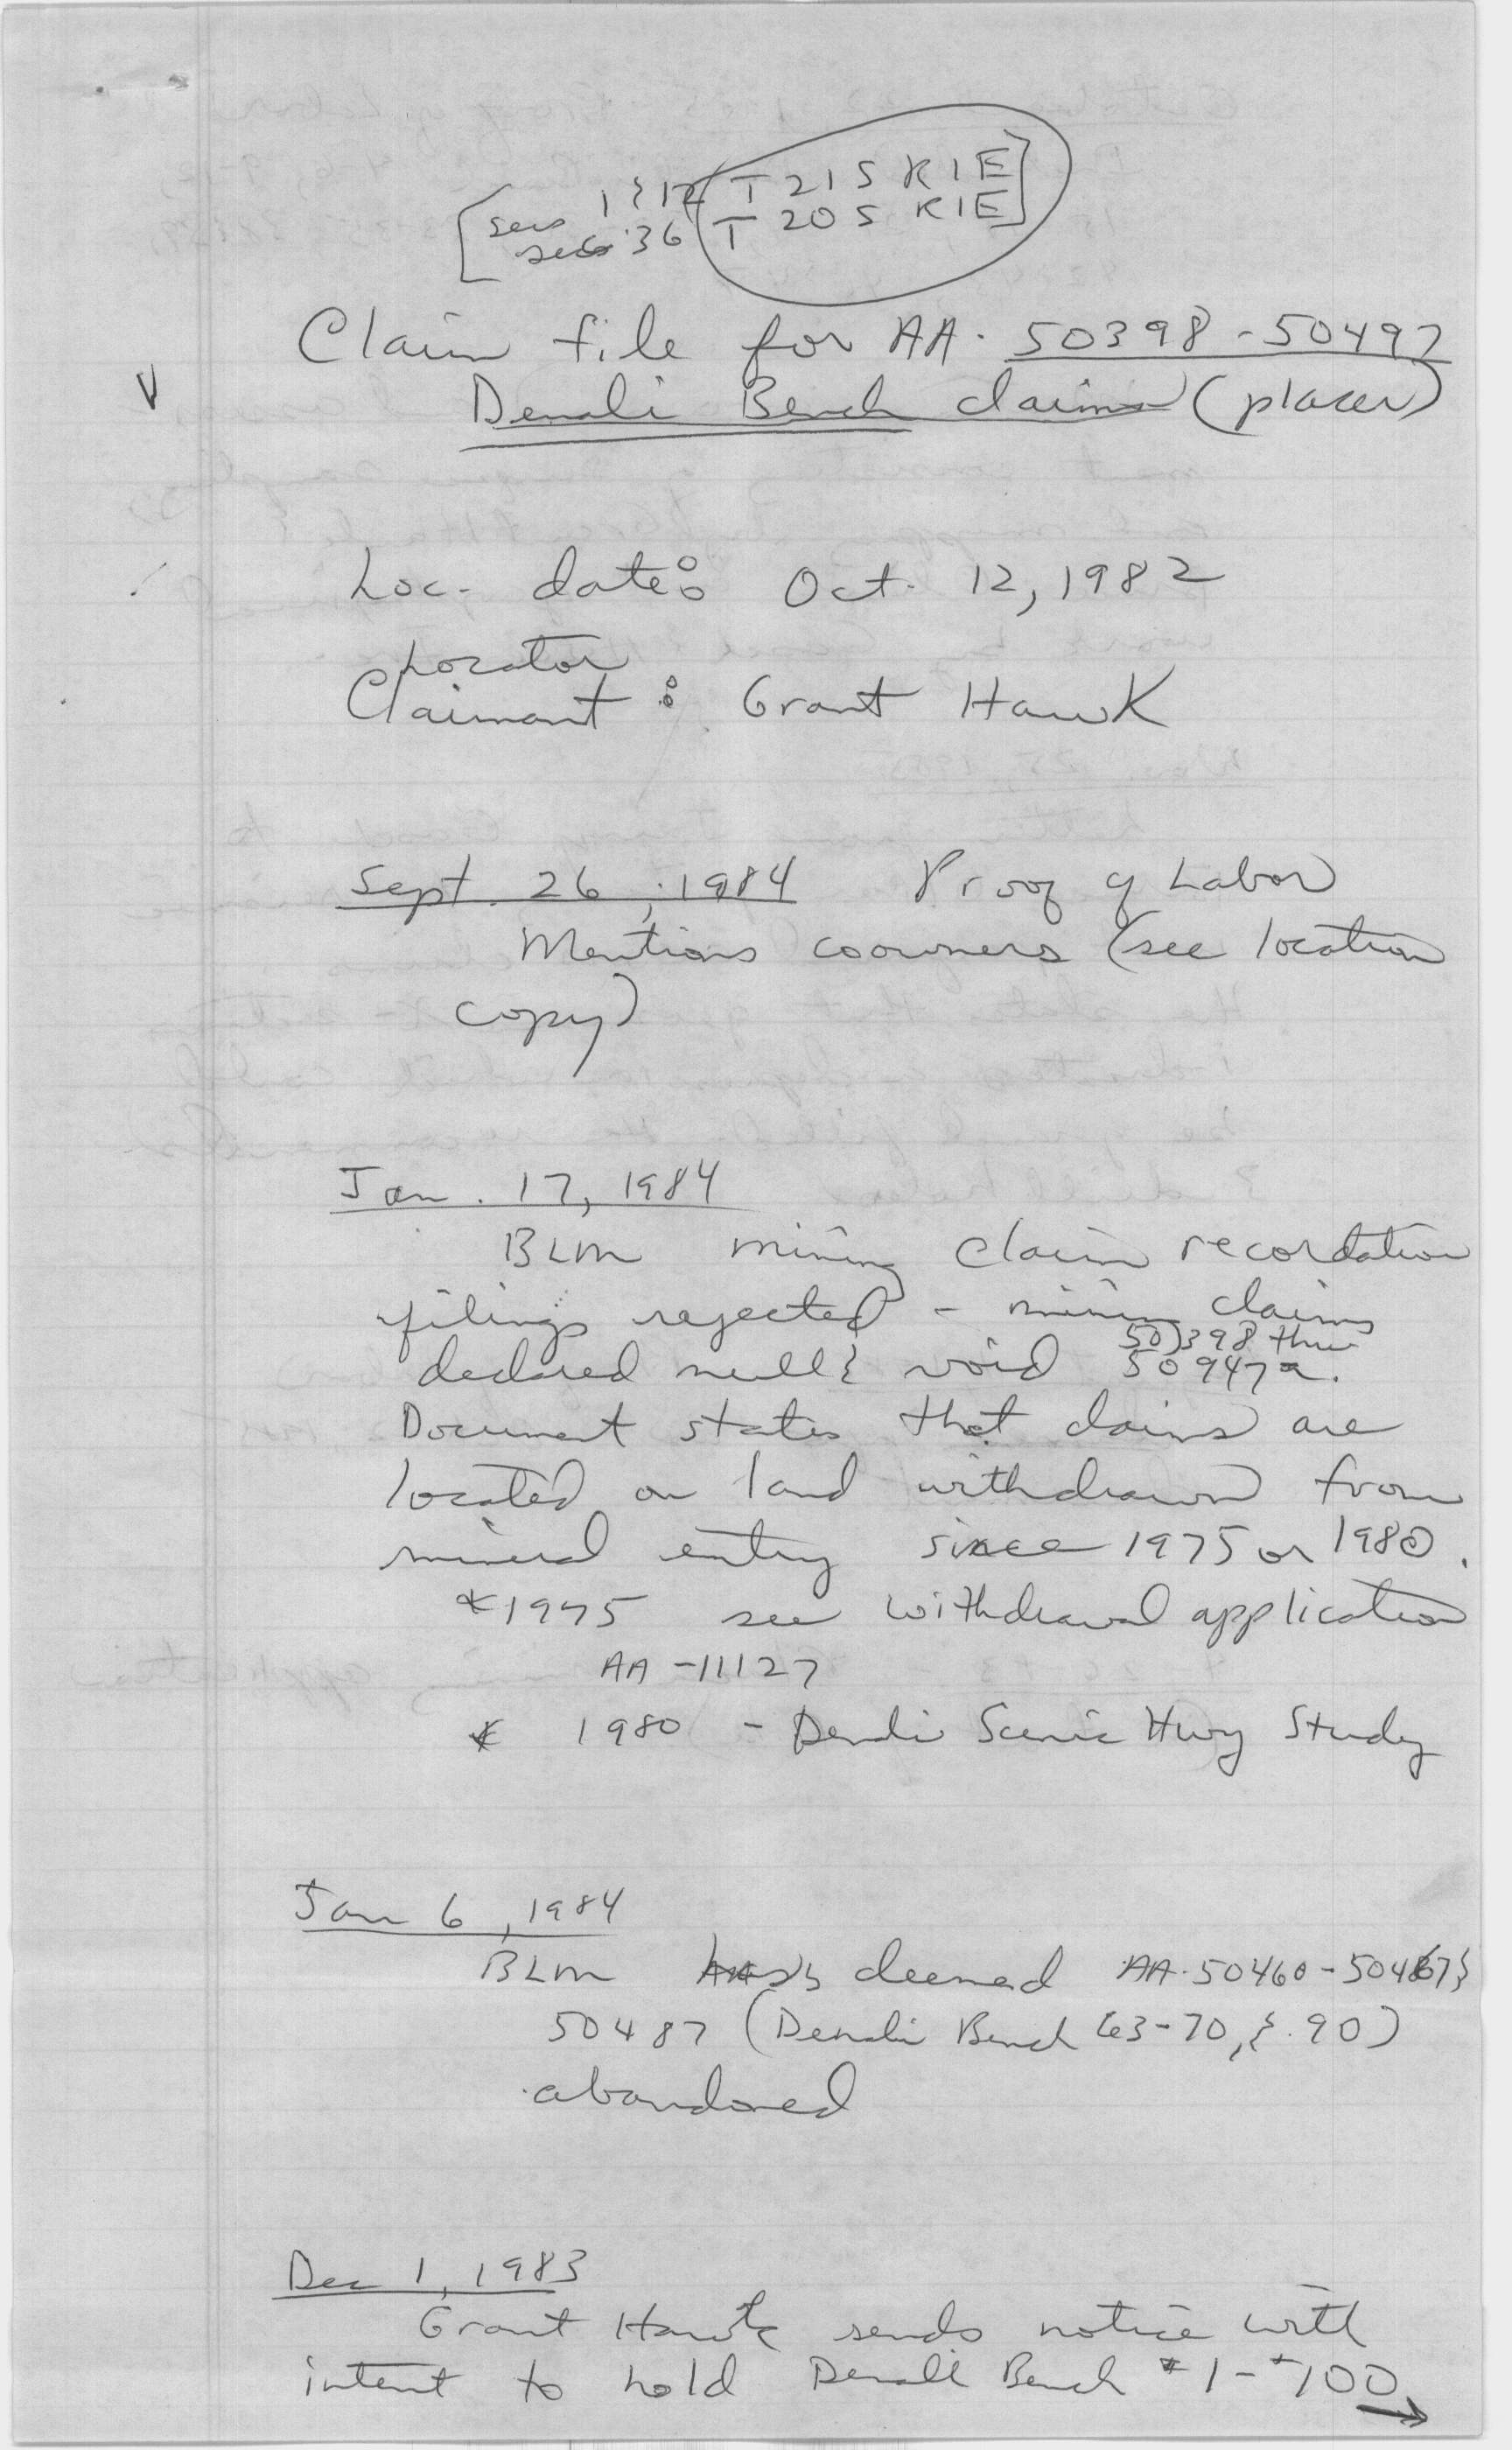 [secs 1 & 12 T 21S R1E]
secs 36 T 20S R1E
Claim file for AA-50398-50497
Denali Bench claims (placer)
V
Loc. date: Oct. 12, 1982
Locator
Claimant: Grant Hawk
Sept. 26, 1984 Proof of Labor
Mentions coowners (see location
copy)
Jan. 17, 1984
BLM mining claim recordation
filings rejected - mining claims
50398 thru
declared null & void 50947
Document states that claims are
located on land withdrawn from
mineral entry since 1975 or 1980.
*1975 see withdrawal application
AA-11127
* 1980 - Denali Scenic Hwy Study
Jan 6, 1984
BLM deemed AA-50460-50467 &
50487 (Denali Bench 63-70, & 90)
abandoned
Dec 1, 1983
Grant Hawk sends notice with
intent to hold Denali Bench #1-#100
→